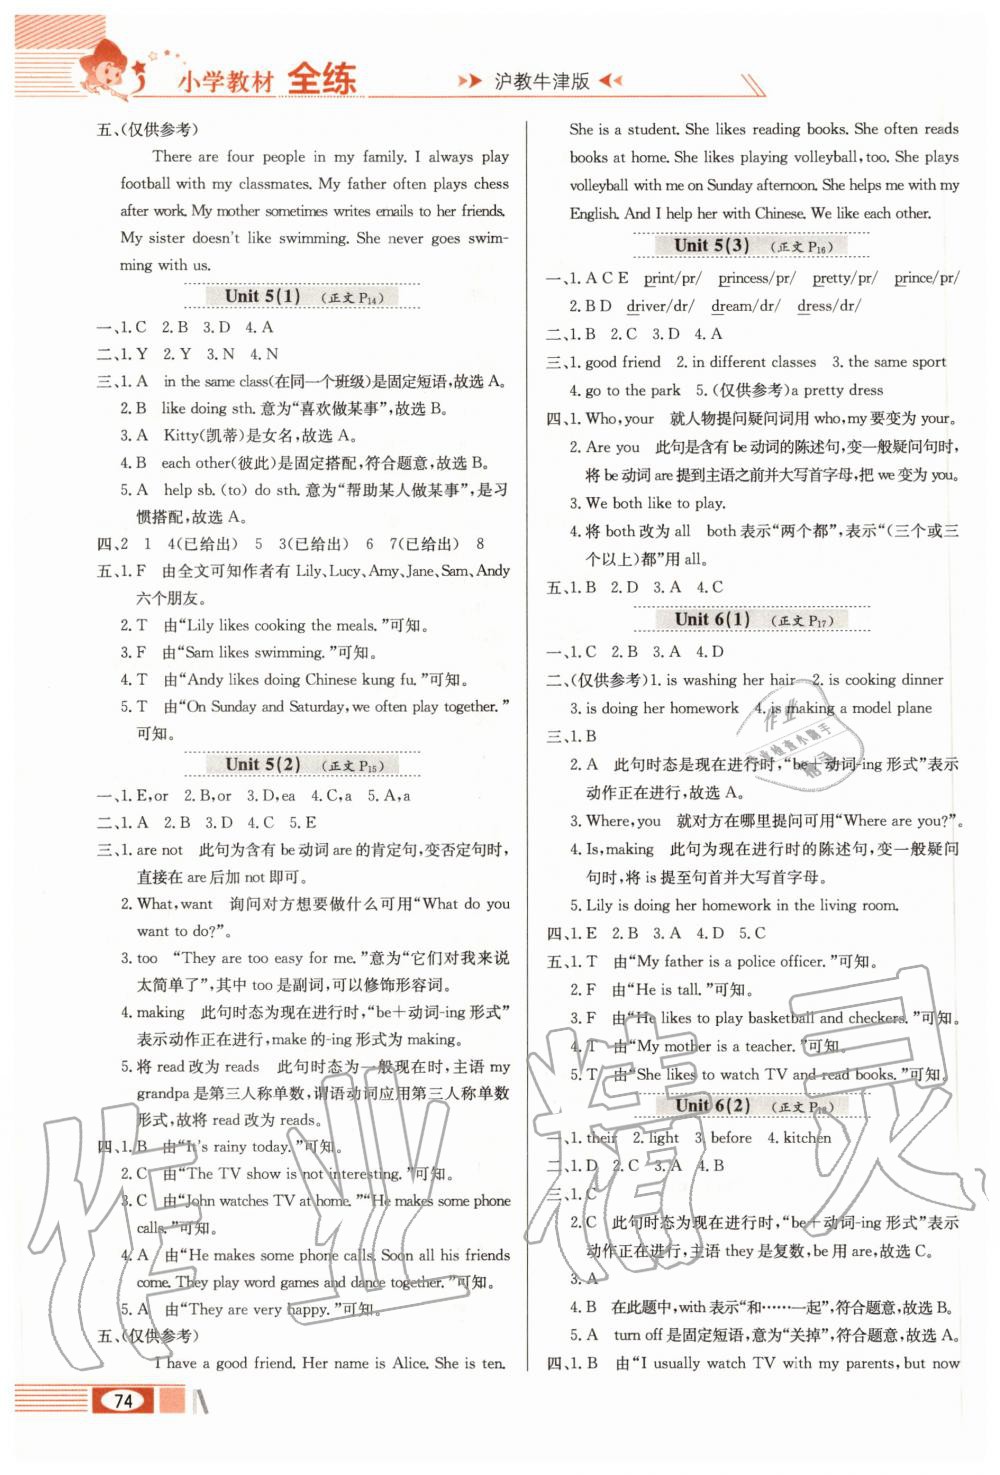 小学教材 全练
沪教牛津版
五、(仅供参考)
There are four people in my family. I always play
football with my classmates. My father often plays chess
after work. My mother sometimes writes emails to her friends.
My sister doesn't like swimming. She never goes swim-
ming with us.
Unit 5(1) (正文 P14)
一、1. C 2. B 3. D 4. A
二、1. Y 2. Y 3. N 4. N
三、1. A in the same class(在同一个班级)是固定短语,故选 A。
2. B like doing sth. 意为“喜欢做某事”,故选 B。
3. A Kitty(凯蒂)是女名,故选 A。
4. B each other(彼此)是固定搭配,符合题意,故选 B。
5. A help sb. (to) do sth. 意为“帮助某人做某事”,是习
惯搭配,故选 A。
四、2 1 4(已给出) 5 3(已给出) 6 7(已给出) 8
五、1. F 由全文可知作者有 Lily,Lucy,Amy,Jane,Sam,Andy
六个朋友。
2. T 由“Lily likes cooking the meals.”可知。
3. F 由“Sam likes swimming.”可知。
4. T 由“Andy likes doing Chinese kung fu.”可知。
5. T 由“On Sunday and Saturday, we often play together.”
可知。
Unit 5(2) (正文 P15)
一、1. E,or 2. B,or 3. D,ea 4. C,a 5. A,a
二、1. A 2. B 3. D 4. C 5. E
三、1. are not 此句为含有 be 动词 are 的肯定句,变否定句时,
直接在 are 后加 not 即可。
2. What,want 询问对方想要做什么可用“What do you
want to do?”。
3. too “They are too easy for me.”意为“它们对我来说
太简单了”,其中 too 是副词,可以修饰形容词。
4. making 此句时态为现在进行时,“be+动词-ing 形式”
表示动作正在进行,make 的-ing 形式为 making。
5. 将 read 改为 reads 此句时态为一般现在时,主语 my
grandpa 是第三人称单数,谓语动词应用第三人称单数
形式,故将 read 改为 reads。
四、1. B 由“It's rainy today.”可知。
2. C 由“The TV show is not interesting.”可知。
3. C 由“John watches TV at home.”“He makes some phone
calls.”可知。
4. A 由“He makes some phone calls. Soon all his friends
come. They play word games and dance together.”可知。
5. A 由“They are very happy.”可知。
五、(仅供参考)
I have a good friend. Her name is Alice. She is ten.
74
She is a student. She likes reading books. She often reads
books at home. She likes playing volleyball, too. She plays
volleyball with me on Sunday afternoon. She helps me with my
English. And I help her with Chinese. We like each other.
Unit 5(3) (正文 P16)
一、1. A C E print/pr/ princess/pr/ pretty/pr/ prince/pr/
2. B D driver/dr/ dream/dr/ dress/dr/
二、1. B 2. C 3. D 4. A
三、1. good friend 2. in different classes 3. the same sport
4. go to the park 5. (仅供参考)a pretty dress
四、1. Who,your 就人物提问疑问词用 who,my 要变为 your。
2. Are you 此句是含有 be 动词的陈述句,变一般疑问句时,
将 be 动词 are 提到主语之前并大写首字母,把 we 变为 you。
3. We both like to play.
4. 将 both 改为 all both 表示“两个都”,表示“(三个或三
个以上)都”用 all。
五、1. B 2. D 3. A 4. C
Unit 6(1) (正文 P17)
一、1. C 2. B 3. A 4. D
二、(仅供参考)1. is washing her hair 2. is cooking dinner
3. is doing her homework 4. is making a model plane
三、1. B
2. A 此句时态是现在进行时,“be+动词-ing 形式”表示
动作正在进行,故选 A。
3. Where,you 就对方在哪里提问可用“Where are you?”。
4. Is,making 此句为现在进行时的陈述句,变一般疑问
句时,将 is 提至句首并大写首字母。
5. Lily is doing her homework in the living room.
四、1. E 2. B 3. A 4. D 5. C
五、1. T 由“My father is a police officer.”可知。
2. F 由“He is tall.”可知。
3. F 由“He likes to play basketball and checkers.”可知。
4. T 由“My mother is a teacher.”可知。
5. T 由“She likes to watch TV and read books.”可知。
Unit 6(2) (正文 P18)
一、1. their 2. light 3. before 4. kitchen
二、1. D 2. C 3. A 4. B
三、1. C
2. C 此句时态为现在进行时,“be+动词-ing 形式”表示
动作正在进行,主语 they 是复数,be 用 are,故选 C。
3. A
4. B 在此题中,with 表示“和……一起”,符合题意,故选 B。
5. A turn off 是固定短语,意为“关掉”,符合题意,故选 A。
四、1. B 由“I usually watch TV with my parents, but now
作业精灵